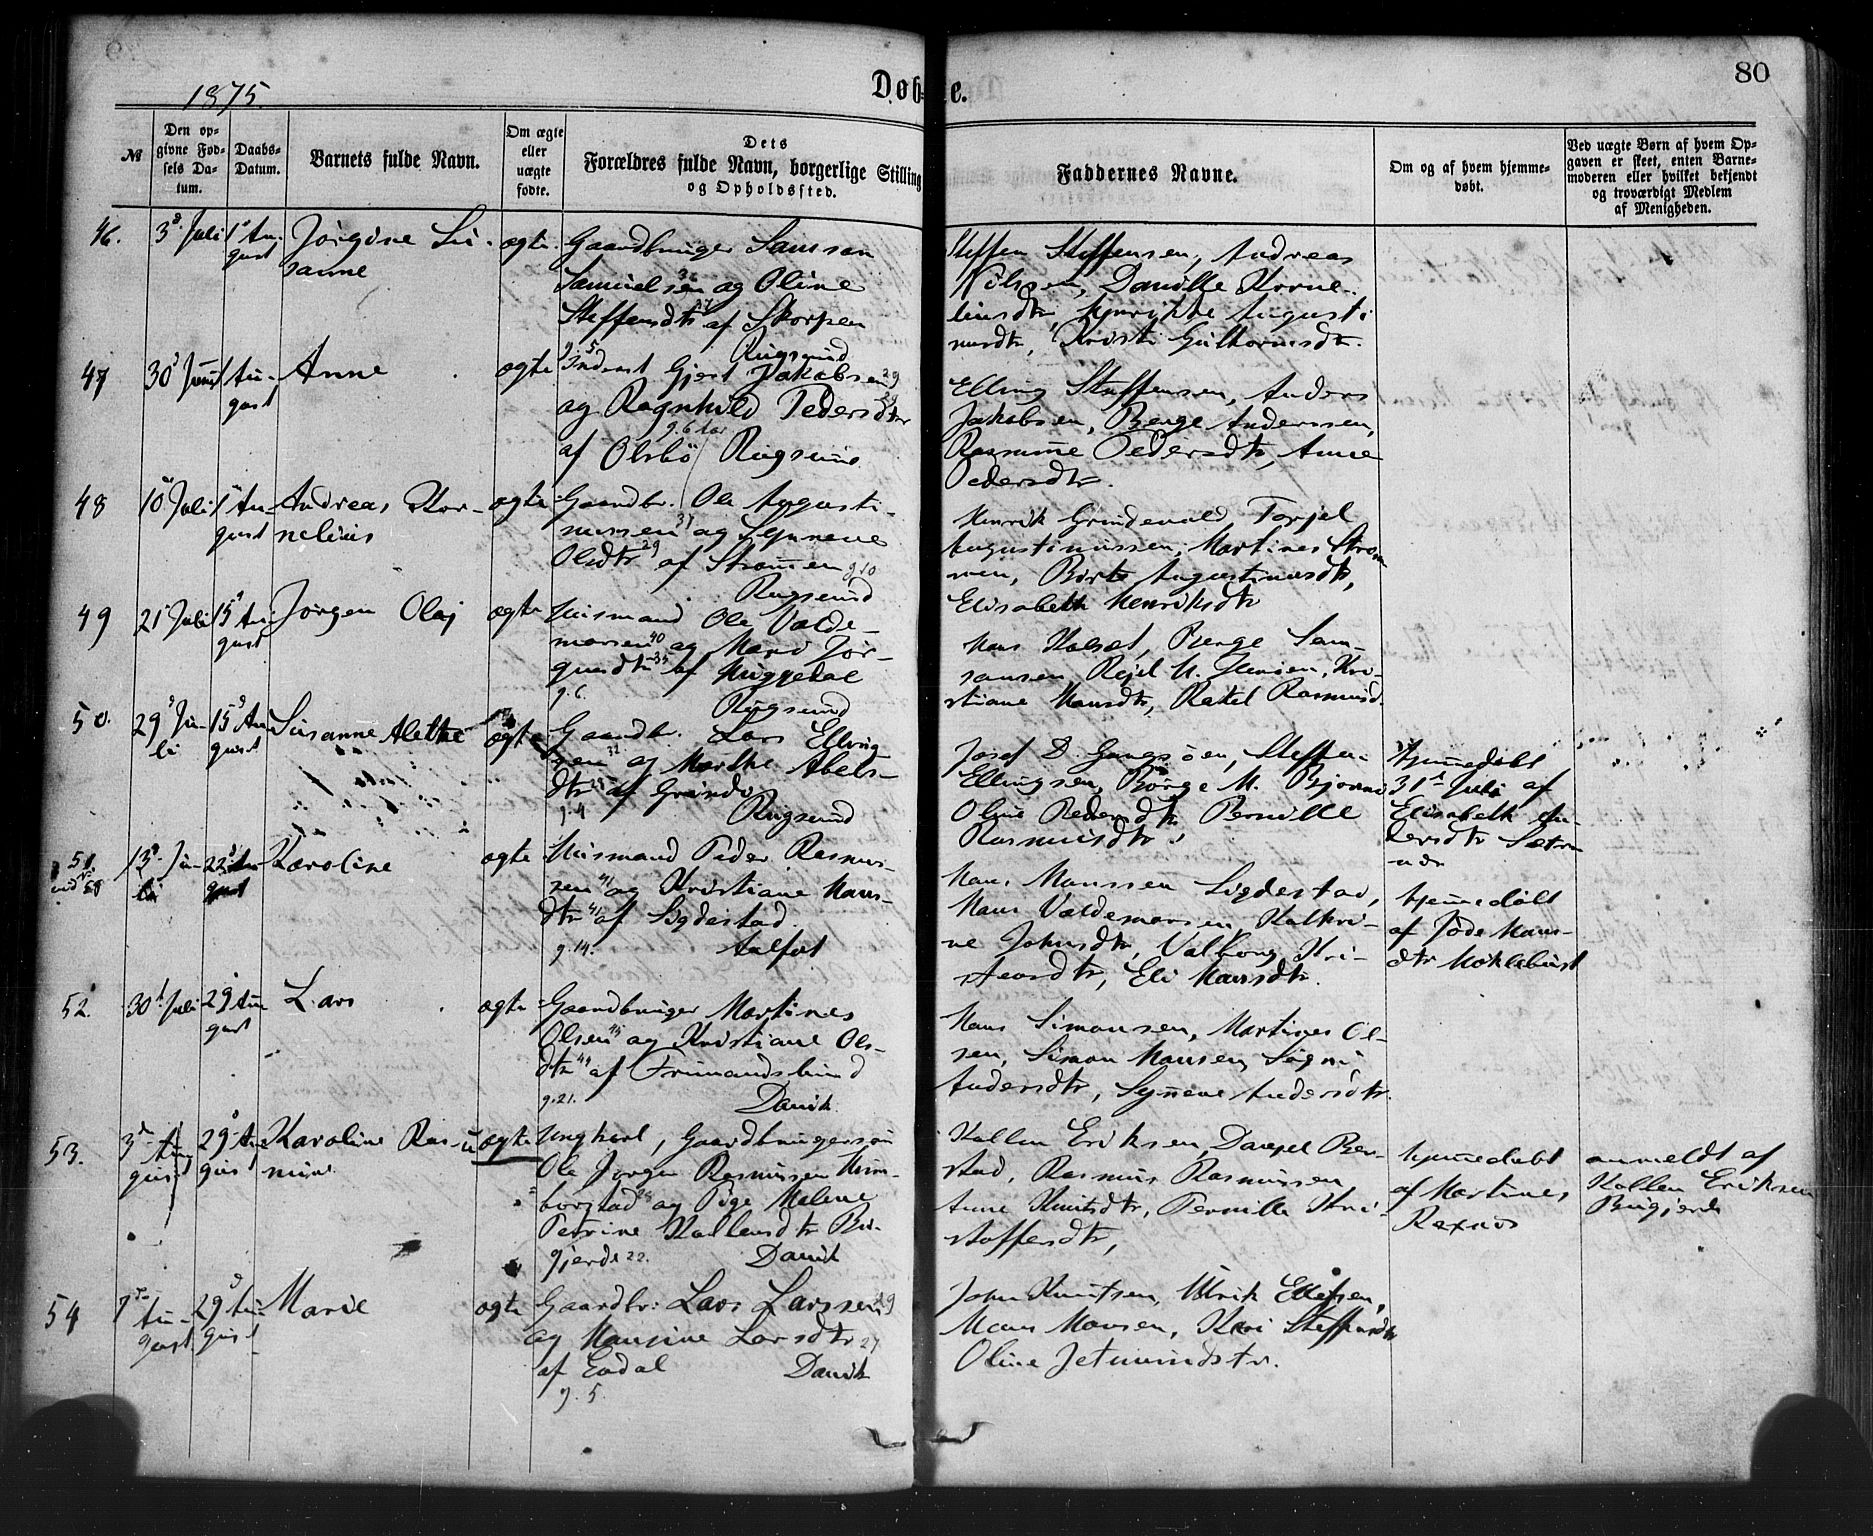 1875.
Døbte.
80
№
Den opgivne Fødsels Datum.
Daabs-Datum.
Barnets fulde Navn.
Om ægte eller uægte fødte.
Dets Forældres fulde Navn, borgerlige Stilling og Opholdssted.
Faddernes Navne.
Om og af hvem hjemmedøbt.
Ved uægte Børn af hvem Opgaven er skeet, enten Barnemoderen eller hvilket bekjendt og troværdigt Medlem af Menigheden.
46. 3d Juli 1st August
Jørgine Susanne
ægte
Gaardbruger Samson
Samuelsen og Oline
Steffensdtr af Skorpen
Rugsund
Steffen Steffensen, Andreas
Nilssen, Danille Korne-
liusdtr, Henrikke Augusti
nusdtr, Kristi Guttormsdtr.
47 30d Juni 1 August
Anne
ægte
Inderst Gjert Jakobsen 29
og Ragnhild Pedersdtr
af Olsbö Rugsund
Elling Steffensen, Anders
Jakobsen, Berge Anderssen,
Rasmine Pedersdtr, Anne
Pedersdtr.
48 10 Juli 1 August
Andreas Kornelius
ægte
Gaardbr. Ole Augusti-
nussen 37 og Synneve
Olsdtr 29 af Strømmen g. 10
Rugsund
Henrik Grindevald, Torjel
Augustinussen, Martines Strøm
men, Birte Augustinusdtr,
Elisabeth Henriksdtr
49 21 Juli 15 August
Jørgen Olaj
ægte
Huusmand Ole Valde-
marsen 40 og Mari Jør-
gensdtr 35 af
g. 6.
Rugsund
Hans Berge Sam-
sonsen Kri-
stiane Hansdtr, Rakel Rasmusd.
50. 29d Juli 15d August
Susanne Alethe
ægte
Gaardbr. Lars Elling
sen 32 og Marthe Abels-
dtr af Grindv
g. 4
Rugsund
Josef D. Steffen
Ellingsen, Børge M.
Oline Pedersdtr, Pernille
Rasmusdtr.
Hjemmedøbt
31d Juli af
Elisabeth An-
dersdtr Sætre-
51. 13d Juli 22d August
Karoline
ægte
Huusmand Peder Rasmus-
sen 41 og Kristiane Hans-
dtr 41 af Sigdestad.
g. 14. Aalfot
Hans Monssen Sigdestad,
Hans Valdemarsen, Kathri-
ne Johnsdtr, Valborg Kri-
stensdtr, Eli Hansdtr.
hjemmedøbt
af Jøde Hans-
dtr Møklebust
52. 30d Juli 29d August
Lars
ægte
Gaardbruger Martines
Olsen 45 og Kristiane Ols-
dtr 44 af Frimandslund
g. 21. Davik
Hans Simonsen, Martines Ol-
sen, Simon Hansen, Signi
Andersdtr, Synneve Andersdtr.
53. 3d August 29d August
Karoline Rasmine
uægte
Ungkarl, Gaardbrugersøn
Ole Jørgen Rasmussen Hum-
borstad 28 og Pige Malene
Petrine Kallensdtr Bu-
gjerde 22. Davik
Kallen Eriksen, Daniel Ber-
stad, Rasmus Rasmussen
Anne Knutsdtr, Pernille Kri-
stoffersdtr,
hjemmedøbt
af Martines
anmeldt af
Kallen Eriksen
Bugjerde
54 7de August 29d August
Marie
ægte
Gaardbr. Lars Larssen 29
og Hansine Larsdtr 27
af Endal Davik
g. 5.
John Knutsen, Ulrik Ellefsen,
Mons Monsen, Kari Steffensdtr
Oline Jetmundsdtr.